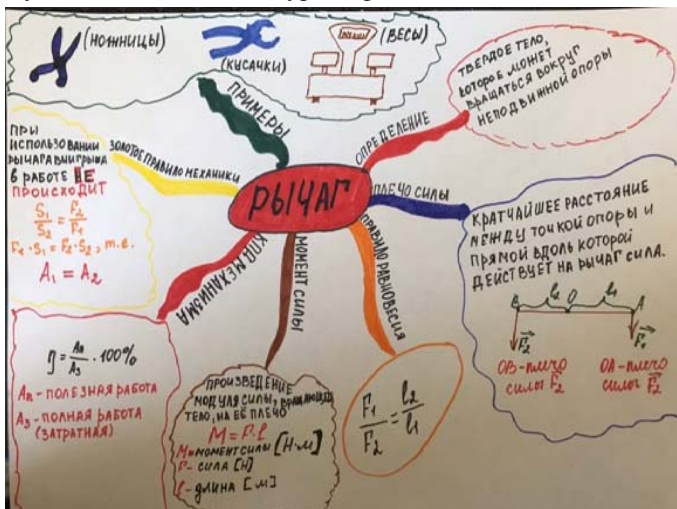 РЫЧАГ
ПРИМЕРЫ
(НОЖНИЦЫ)
(КУСАЧКИ)
(ВЕСЫ)
ОПРЕДЕЛЕНИЕ
ТВЕРДОЕ ТЕЛО,
КОТОРОЕ МОЖЕТ
ВРАЩАТЬСЯ ВОКРУГ
НЕПОДВИЖНОЙ ОПОРЫ
ПЛЕЧО СИЛЫ
КРАТЧАЙШЕЕ РАССТОЯНИЕ
МЕЖДУ ТОЧКОЙ ОПОРЫ И
ПРЯМОЙ ВДОЛЬ КОТОРОЙ
ДЕЙСТВУЕТ НА РЫЧАГ СИЛА.
B l₂ O l₁ A
F₂ F₁
OB-плечо
силы F₂
OA-плечо
силы F₂
ПРАВИЛО РАВНОВЕСИЯ
F₁/F₂ = l₂/l₁
МОМЕНТ СИЛЫ
ПРОИЗВЕДЕНИЕ
МОДУЛЯ СИЛЫ, ВРАЩАЮЩЕЙ
ТЕЛО, НА ЕЁ ПЛЕЧО
M=F·l
M=МОМЕНТ СИЛЫ [Н·м]
F- СИЛА [Н]
l-длина [м]
КПД МЕХАНИЗМА
η = Aп/Aз · 100%
Aп - ПОЛЕЗНАЯ РАБОТА
Aз - ПОЛНАЯ РАБОТА
(ЗАТРАТНАЯ)
ЗОЛОТОЕ ПРАВИЛО МЕХАНИКИ
ПРИ
ИСПОЛЬЗОВАНИИ
РЫЧАГА ВЫИГРЫША
В РАБОТЕ НЕ
ПРОИСХОДИТ
S₁/S₂ = F₂/F₁
F₁·S₁ = F₂·S₂, т.е.
A₁ = A₂